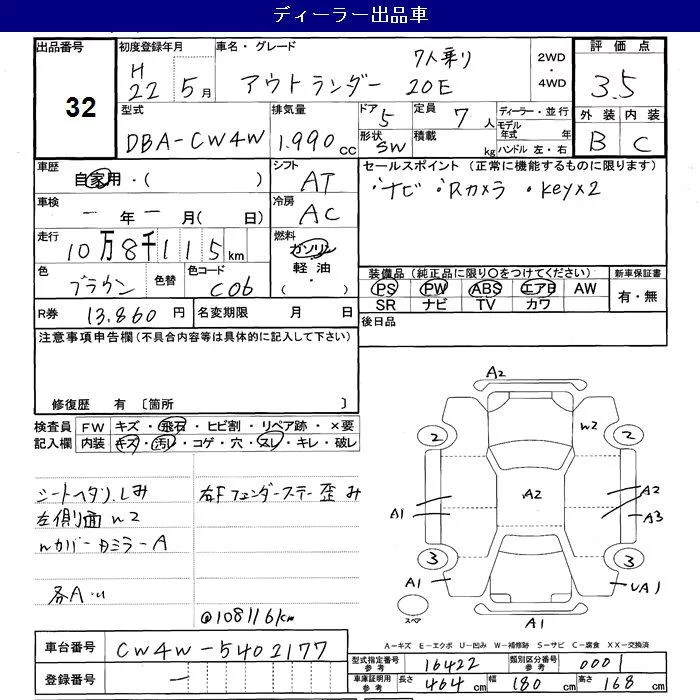 ディーラー出品車
出品番号 32
初度登録年月 H22 5月
車名・グレード アウトランダー 7人乗り 20E
2WD・4WD
評価点 3.5
外装 B 内装 C
型式 DBA-CW4W
排気量 1.990cc
ドア 5 形状 SW
定員 7人 積載 kg
ディーラー・並行
モデル年式 年
ハンドル 左・右
車歴 自家用・( )
シフト AT
セールスポイント(正常に機能するものに限ります)
・ナビ ・Rカメラ ・Keyx2
車検 一年一月( 日)
冷房 AC
走行 10万8千115km
燃料 ガソリン 軽油 ( ・ )
色 ブラウン 色替 色コード C06
装備品(純正品に限り○をつけてください) 新車保証書
PS PW ABS エアB AW 有・無
SR ナビ TV カワ
R券 13.860円 名変期限 月 日
後日品
注意事項申告欄(不具合内容等は具体的に記入して下さい)
修復歴 有 〔箇所 〕
検査員記入欄
FW キズ・飛石・ヒビ割・リペア跡・×要
内装 キズ・汚レ・コゲ・穴・スレ・キレ・破レ
シートヘタリ.しみ
左側面 w2
wカバー.Dミラー A
各A.u
右Fフェンダーステー歪み
@108116km
A2
w2
2 2
A2
A1 A2
A3
3 3
A1 UA1
スペア
A1
A-キズ E-エクボ U-凹み W-補修跡 S-サビ C-腐食 XX-交換済
車台番号 CW4W-5402177
登録番号 一
型式指定番号 参考 16422 類別区分番号 参考 0001
車庫証明用 参考 長さ 464cm 幅 180cm 高さ 168cm